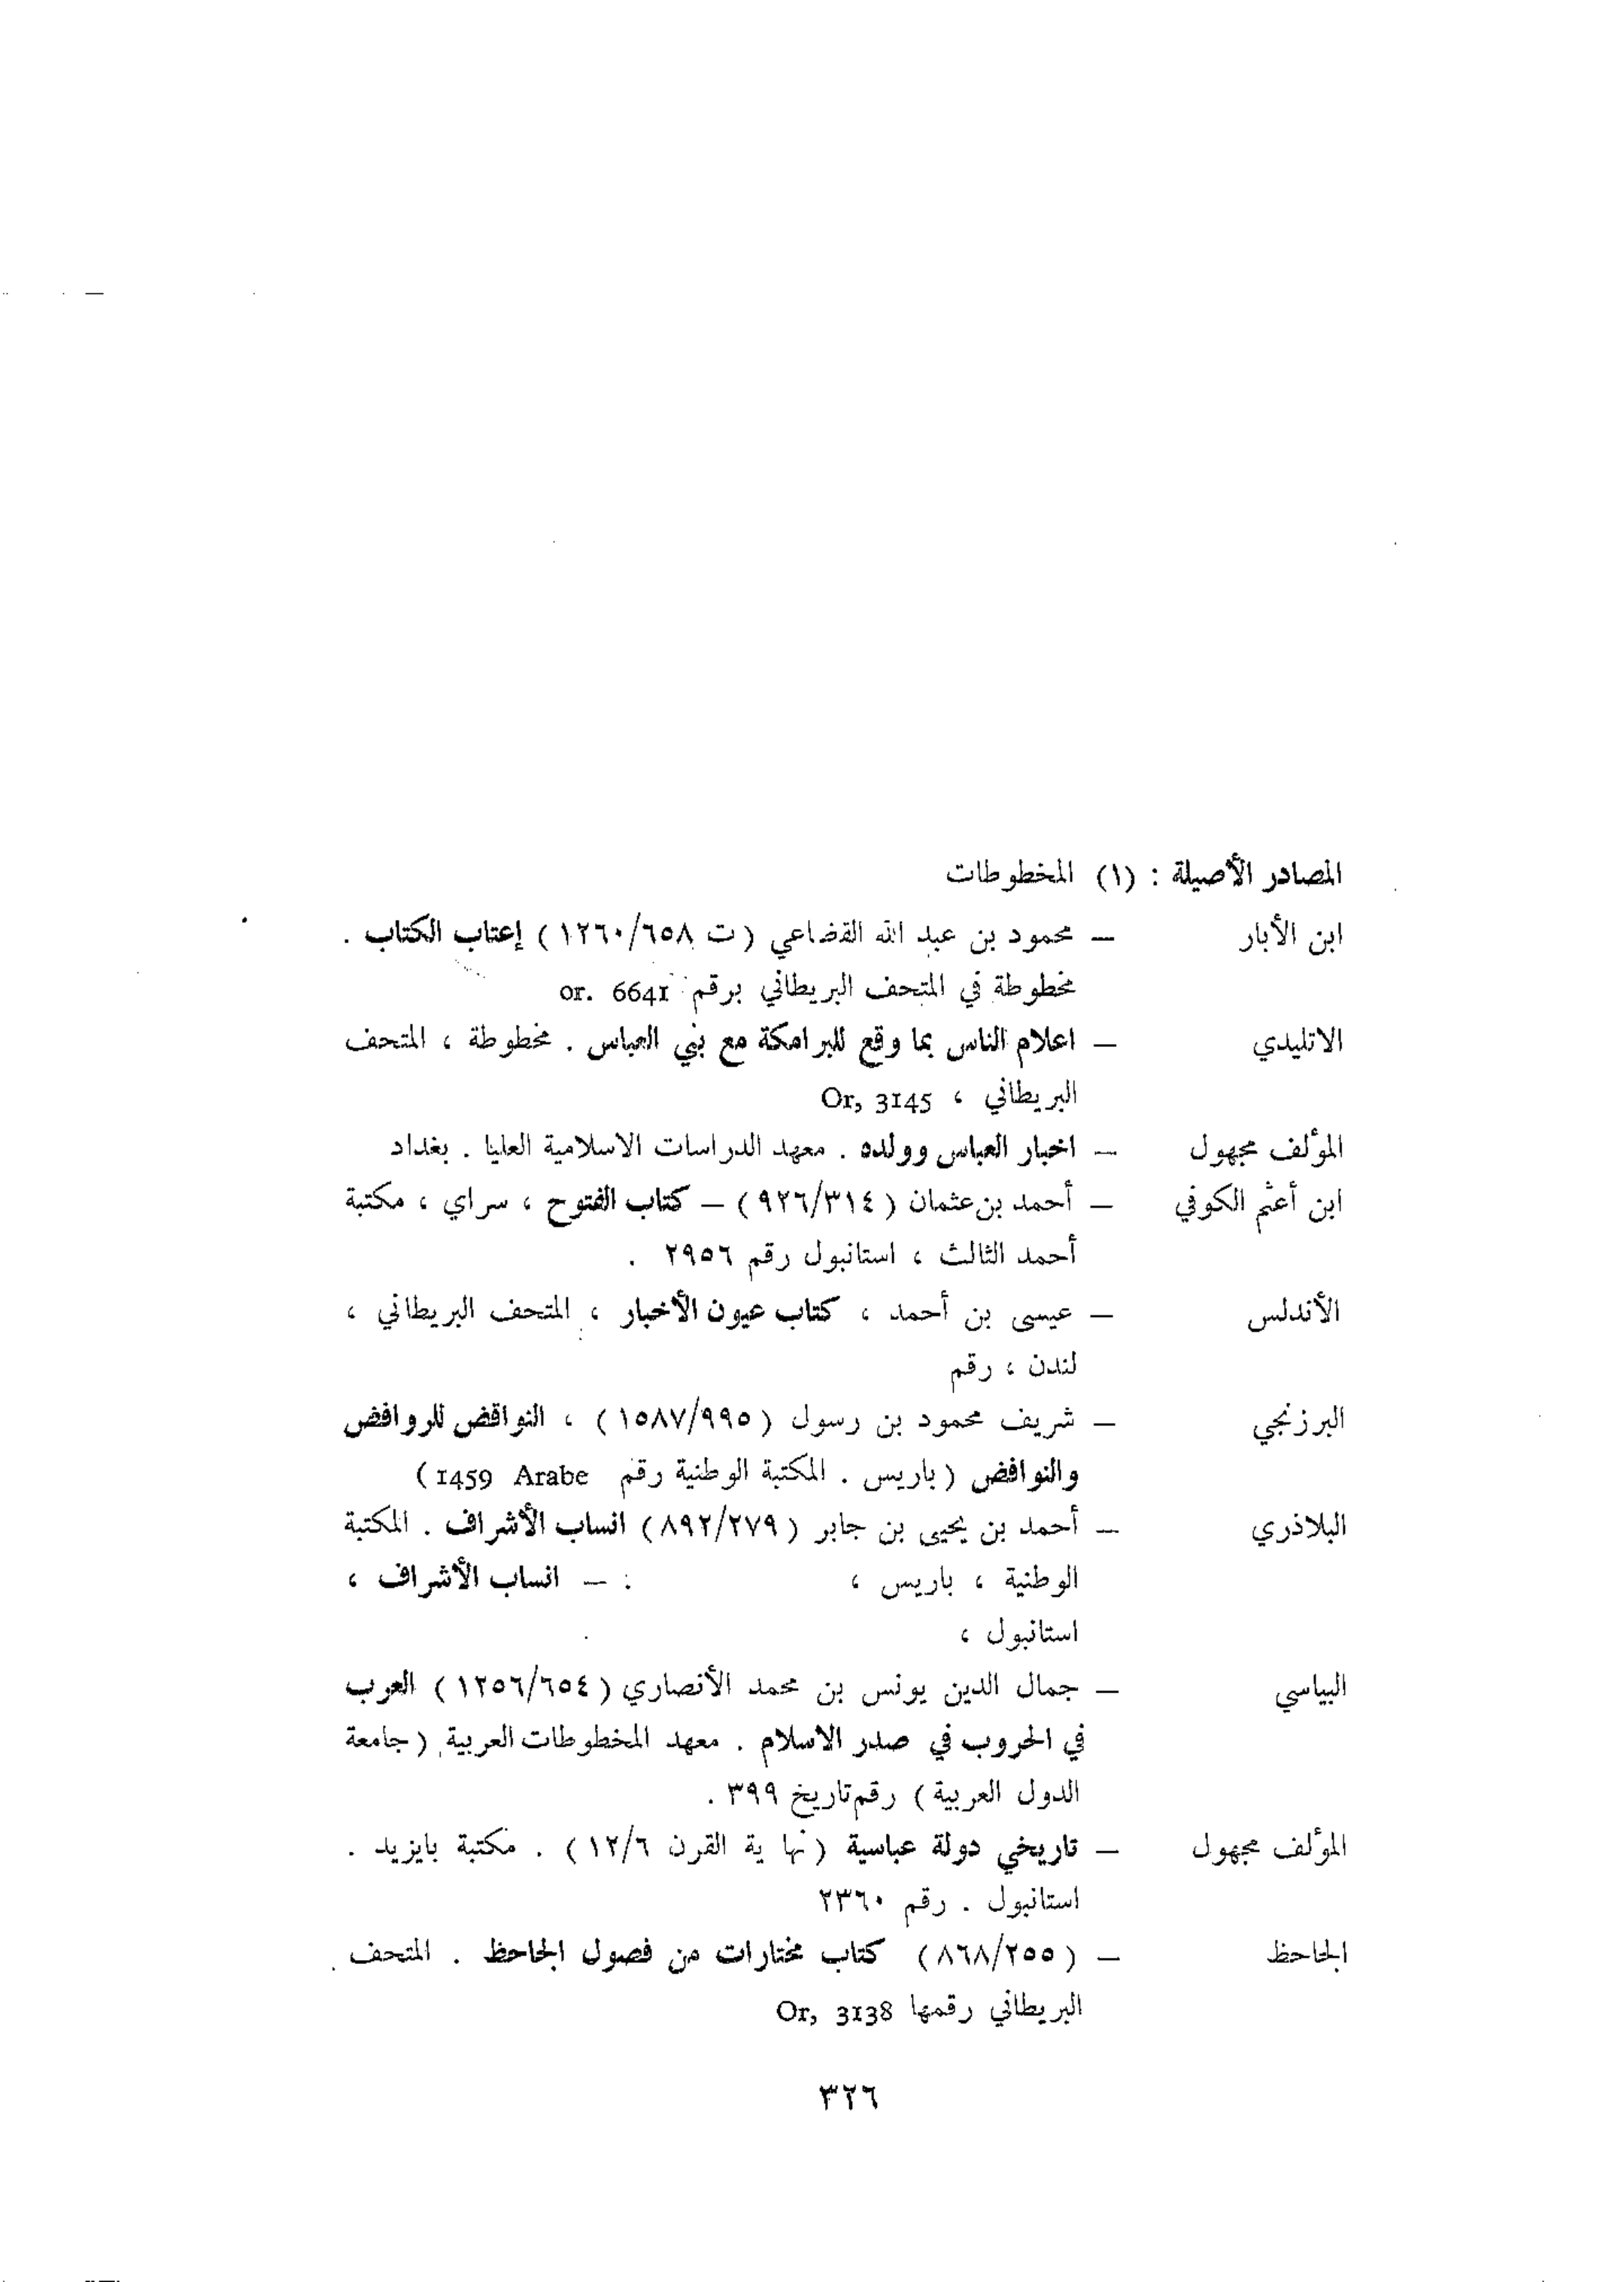 المصادر الأصيلة : (١) المخطوطات
ابن الأبار — محمود بن عبد الله القضاعي (ت ١٢٦٠/٦٥٨) إعتاب الكتاب .
مخطوطة في المتحف البريطاني برقم or. 6641
الاتليدي — اعلام الناس بما وقع للبرامكة مع بني العباس . مخطوطة ، المتحف
البريطاني ، Or, 3145
المؤلف مجهول — اخبار العباس وولده . معهد الدراسات الاسلامية العليا . بغداد
ابن أعثم الكوفي — أحمد بن عثمان (٩٢٦/٣١٤) — كتاب الفتوح ، سراي ، مكتبة
أحمد الثالث ، استانبول رقم ٢٩٥٦ .
الأندلس — عيسى بن أحمد ، كتاب عيون الأخبار ، المتحف البريطاني ،
لندن ، رقم
البرزنجي — شريف محمود بن رسول (١٥٨٧/٩٩٥) ، النواقض للروافض
والنوافض (باريس . المكتبة الوطنية رقم 1459 Arabe)
البلاذري — أحمد بن يحيى بن جابر (٨٩٢/٢٧٩) انساب الأشراف . المكتبة
الوطنية ، باريس ، : — انساب الأشراف ،
استانبول ،
البياسي — جمال الدين يونس بن محمد الأنصاري (١٢٥٦/٦٥٤) العرب
في الحروب في صدر الاسلام . معهد المخطوطات العربية (جامعة
الدول العربية) رقم تاريخ ٣٩٩ .
المؤلف مجهول — تاريخي دولة عباسية (نها ية القرن ١٢/٦) . مكتبة بايزيد .
استانبول . رقم ٢٣٦٠
الجاحظ — (٨٦٨/٢٥٥) كتاب مختارات من فصول الجاحظ . المتحف
البريطاني رقمها Or, 3138
٣٢٦